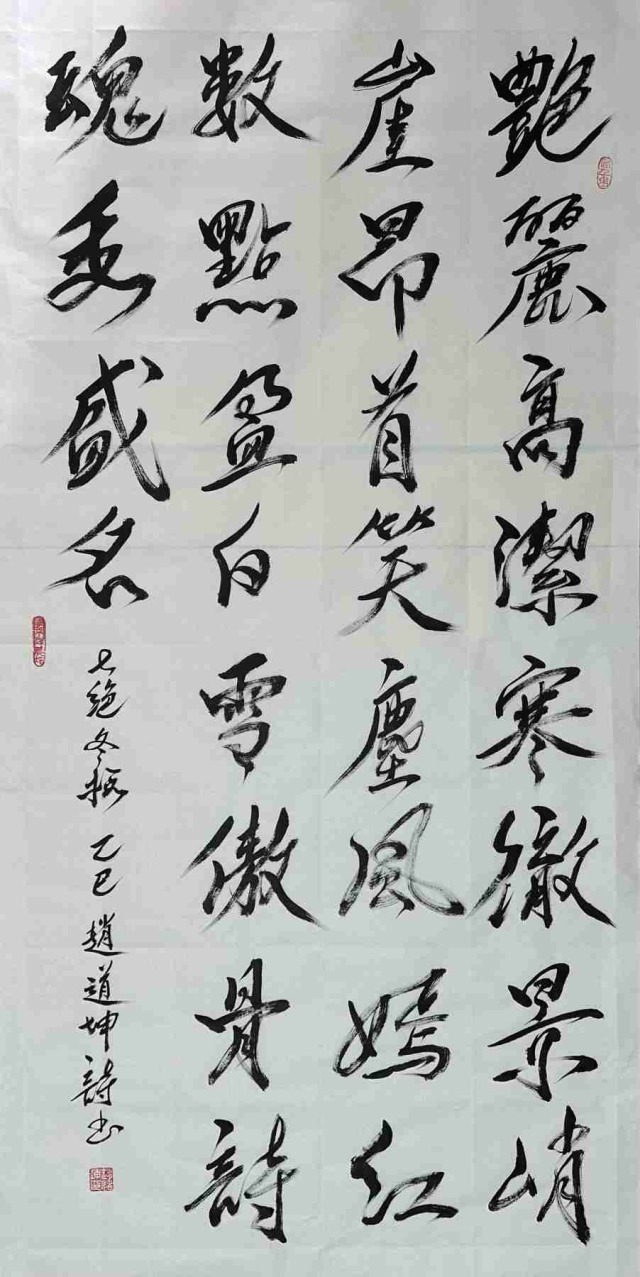 艷麗高潔寒徹景峭
崖昂首笑塵風嫣紅
數點盈白雪傲骨詩
魂秀盛名
七絕冬梅 乙巳 趙道坤詩书